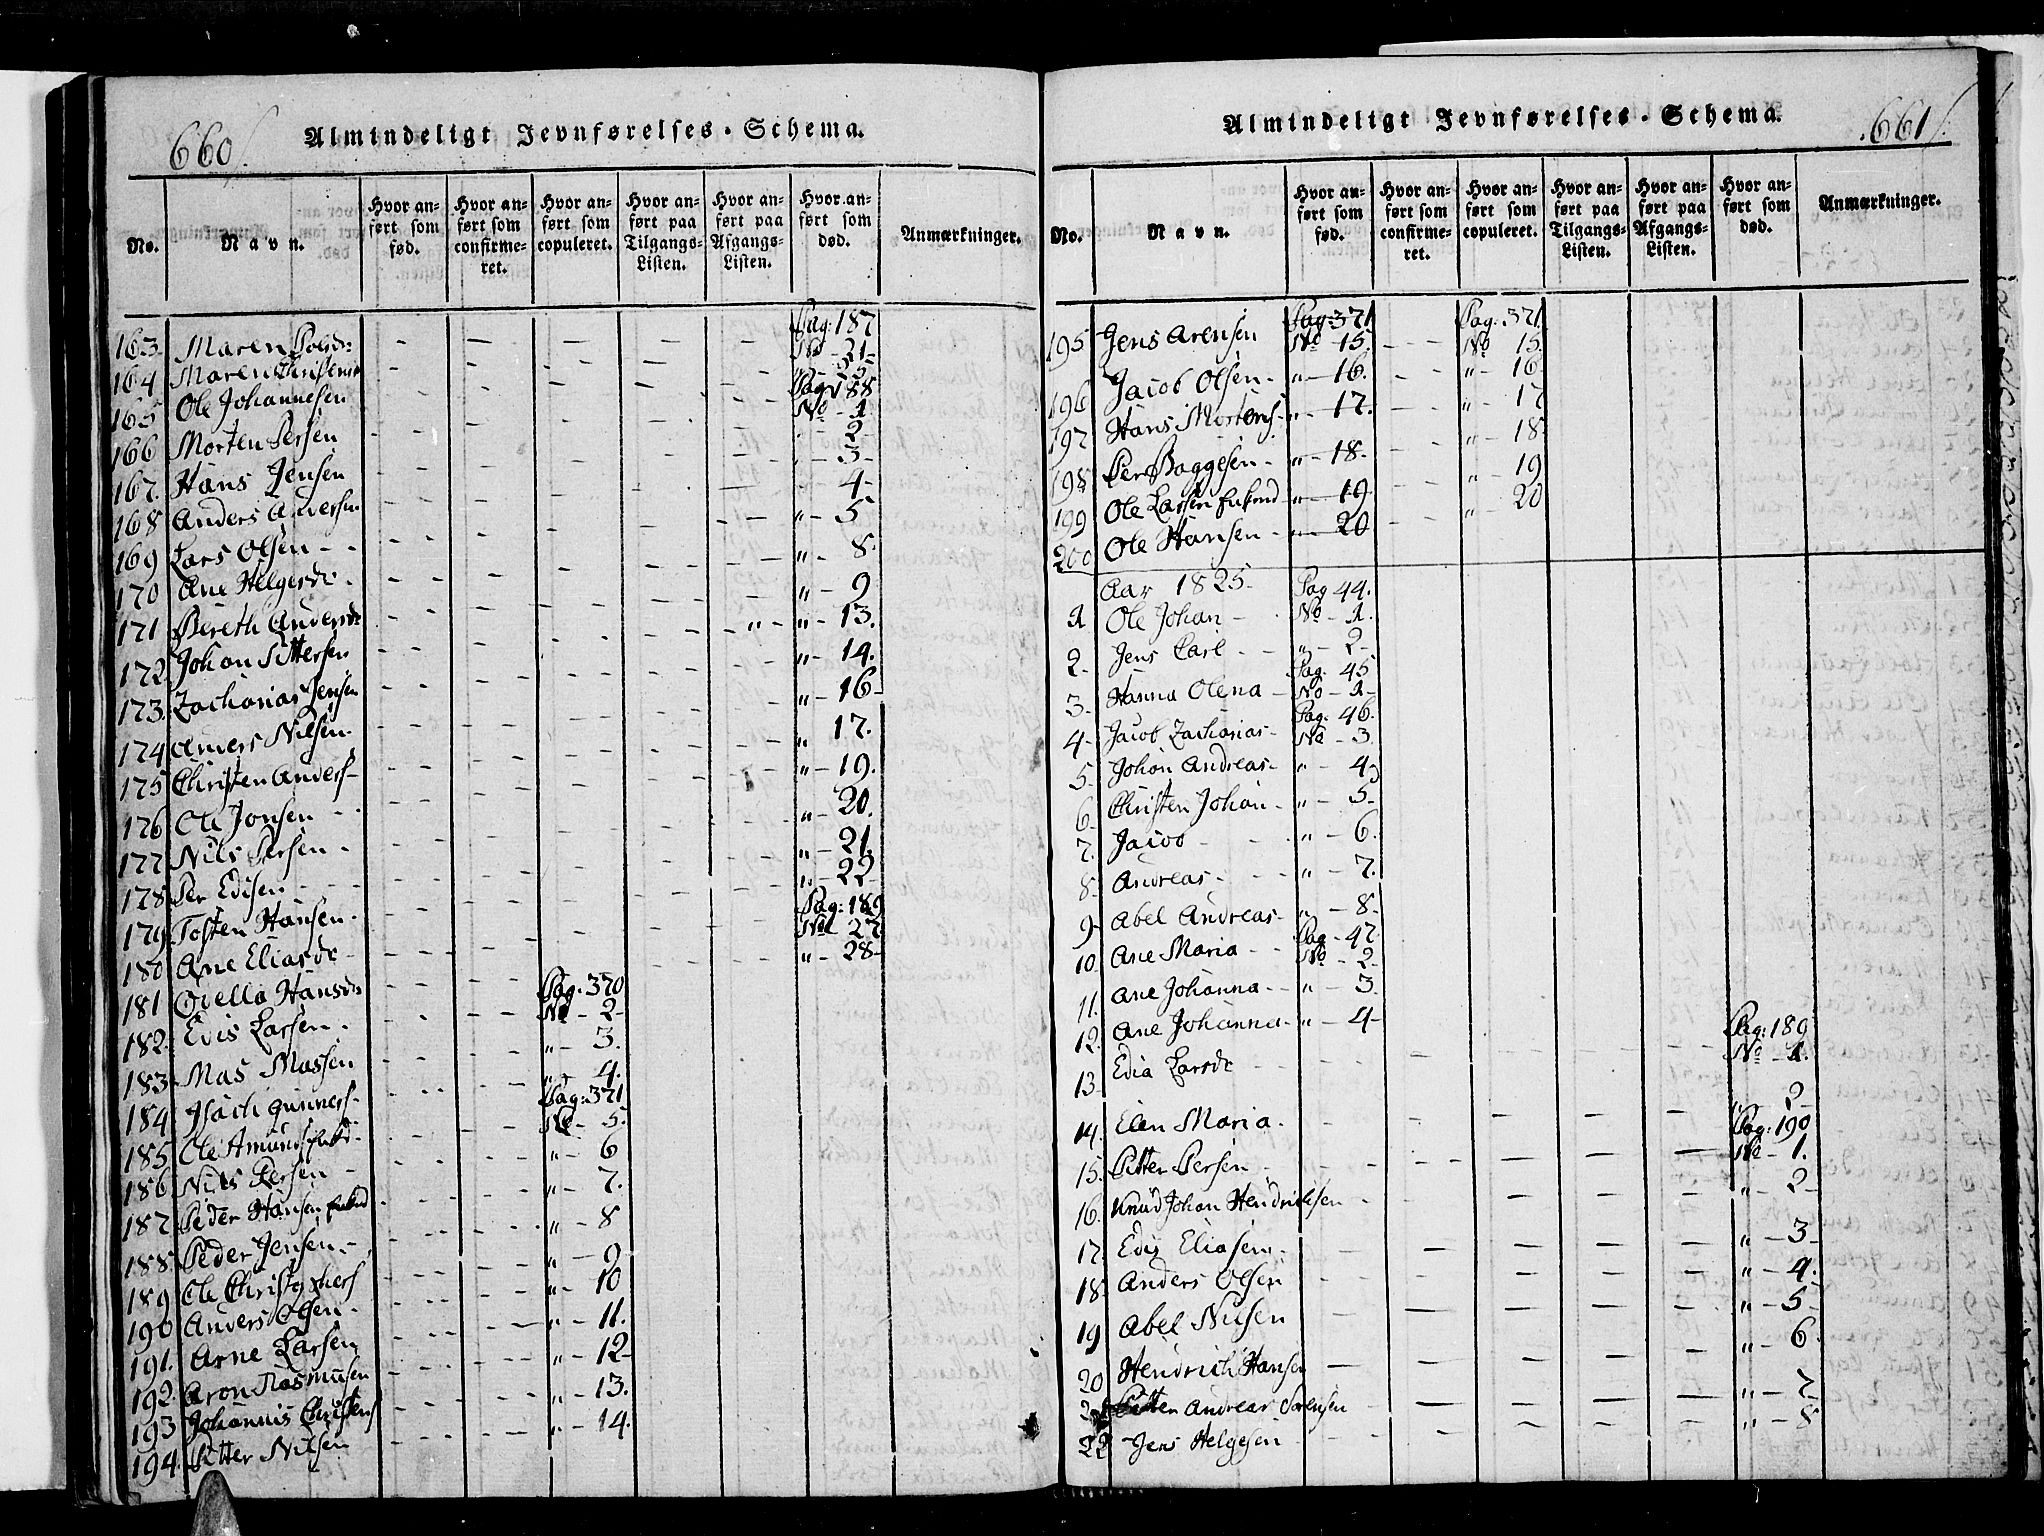 660
Almindeligt Jevnførelses-Schema.
No. Navn. Hvor anført som fød. Hvor anført som confirmeret. Hvor anført som copuleret. Hvor anført paa Tilgangs-Listen. Hvor anført paa Afgangs-Listen. Hvor anført som død. Anmærkninger.
Pag: 187
163 Maren No - 21-
164 Maren
Pag: 188
165 Ole Johannesen No - 1
166 Morten Persen - 2-
167. Hans Jensen - 3-
168 Anders Andersen - 4-
169 Lars Olsen - - „ - 5
170 Ane Helgerdr - „ - 8
171 Bereth Andersdr „ - 9
172 Johan Pittersen „ - 13.
173. Zacharias Jensen „ - 14.
174 Anders Nilsen. „ - 16-
175 Christen Anders- „ 17.
176 Ole Jonsen - „ - 19.
177 Nils Persen - „ - 20.
178 Per Edisen „ - 21.
179 Tosten Hansen. „ - 22
Pag: 189
180 Ane Eliasdr - No 27
181 Hansdr „ - 28-
Pag: 370
182 Edis Larsen. No - 2-
183 Mas Massen „ - 3.
184 Isach Gunners- „ - 4.
Pag: 371
185 Ole No - 5.
186 Nils Persen - „ - 6
187 Peder Hansen „ - 7.
188 Peder Jensen. „ - 8
189 Ole „ - 9
190 Anders Olsen - „ - 10
191. Arne Larsen „ - 11.
192 Aron Rasmusen „ - 12-
193 Johannis Christens „ - 13.
194 Pitter Nilsen „ - 14.
661
Almindeligt Jevnførelses-Schema.
No. Navn. Hvor anført som fød. Hvor anført som confirmeret. Hvor anført som copuleret. Hvor anført paa Tilgangs-Listen. Hvor anført paa Afgangs-Listen. Hvor anført som død. Anmærkninger.
Pag: 371 Pag: 371
195 Jens Arensen No 15. No 15.
196 Jacob Olsen - „ - 16. „ - 16
197 Hans Mortens- „ - 17. „ - 17
198 Per Baggesen - „ - 18. „ - 18
199 Ole Larsen „ - 19. „ - 19
200 Ole Hansen - „ - 20 „ - 20
Aar 1825. Pag 44.
1 Ole Johan - No - 1.
2- Jens Carl - „ - 2-
Pag. 45
3. Hanna Olena - No - 1-
Pag. 46.
4- Jacob Zacharias- No - 3
5. Johan Andreas- „ - 4
6 Christen Johan - „ - 5-
7. Jacob „ - 6.
8 Andreas- „ - 7.
9- Abel Andreas- „ - 8-
Pag - 47.
10 Ane Maria - No - 2-
11. Ane Johanna - „ - 3.
12 Ane Johanna - „ - 4-
Pag: 189
13 Edia Larsdr No - 1.
14. Elen Maria. „ 2-
Pag: 190
15. Pitter Persen No - 1.
16. Knud Johan Hendrichsen „ - 2-
17 Edis Eliasen. „ - 3-
18 Anders Olsen „ - 4.
19 Abel Nilsen „ - 5-
20 Hendrich Hansen „ - 6
21 Pitter Andreas Sørensen „ - 7
22 Jens Helgesen „ - 8